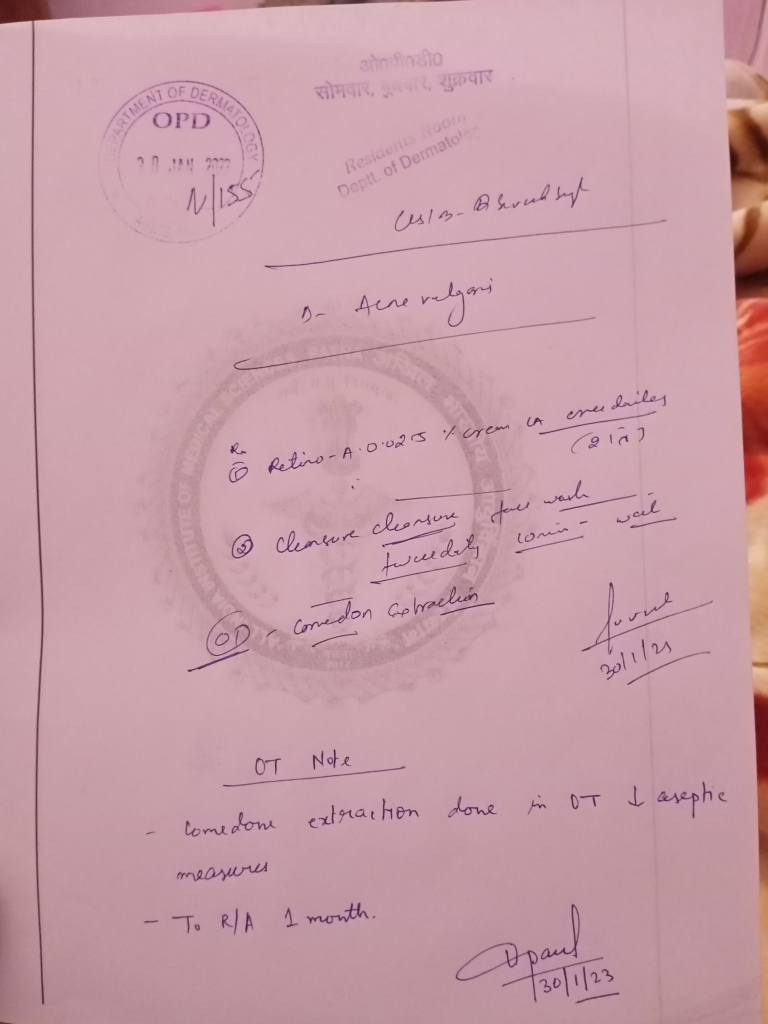 ओ०पी०डी०
सोमवार, बुधवार, शुक्रवार
DEPARTMENT OF DERMATOLOGY
OPD
30 JAN
N/155
Residents Room
Deptt. of Dermatology
D- Acne vulgaris
Rx
① Retino-A 0.025 % cream LA once daily
② Cleansure cleansure face wash
twice daily 10 min - wait
OD - comedon extraction
30/1/23
OT Note
- Comedone extraction done in OT ↓ aseptic
measures
- To R/A 1 month.
30/1/23